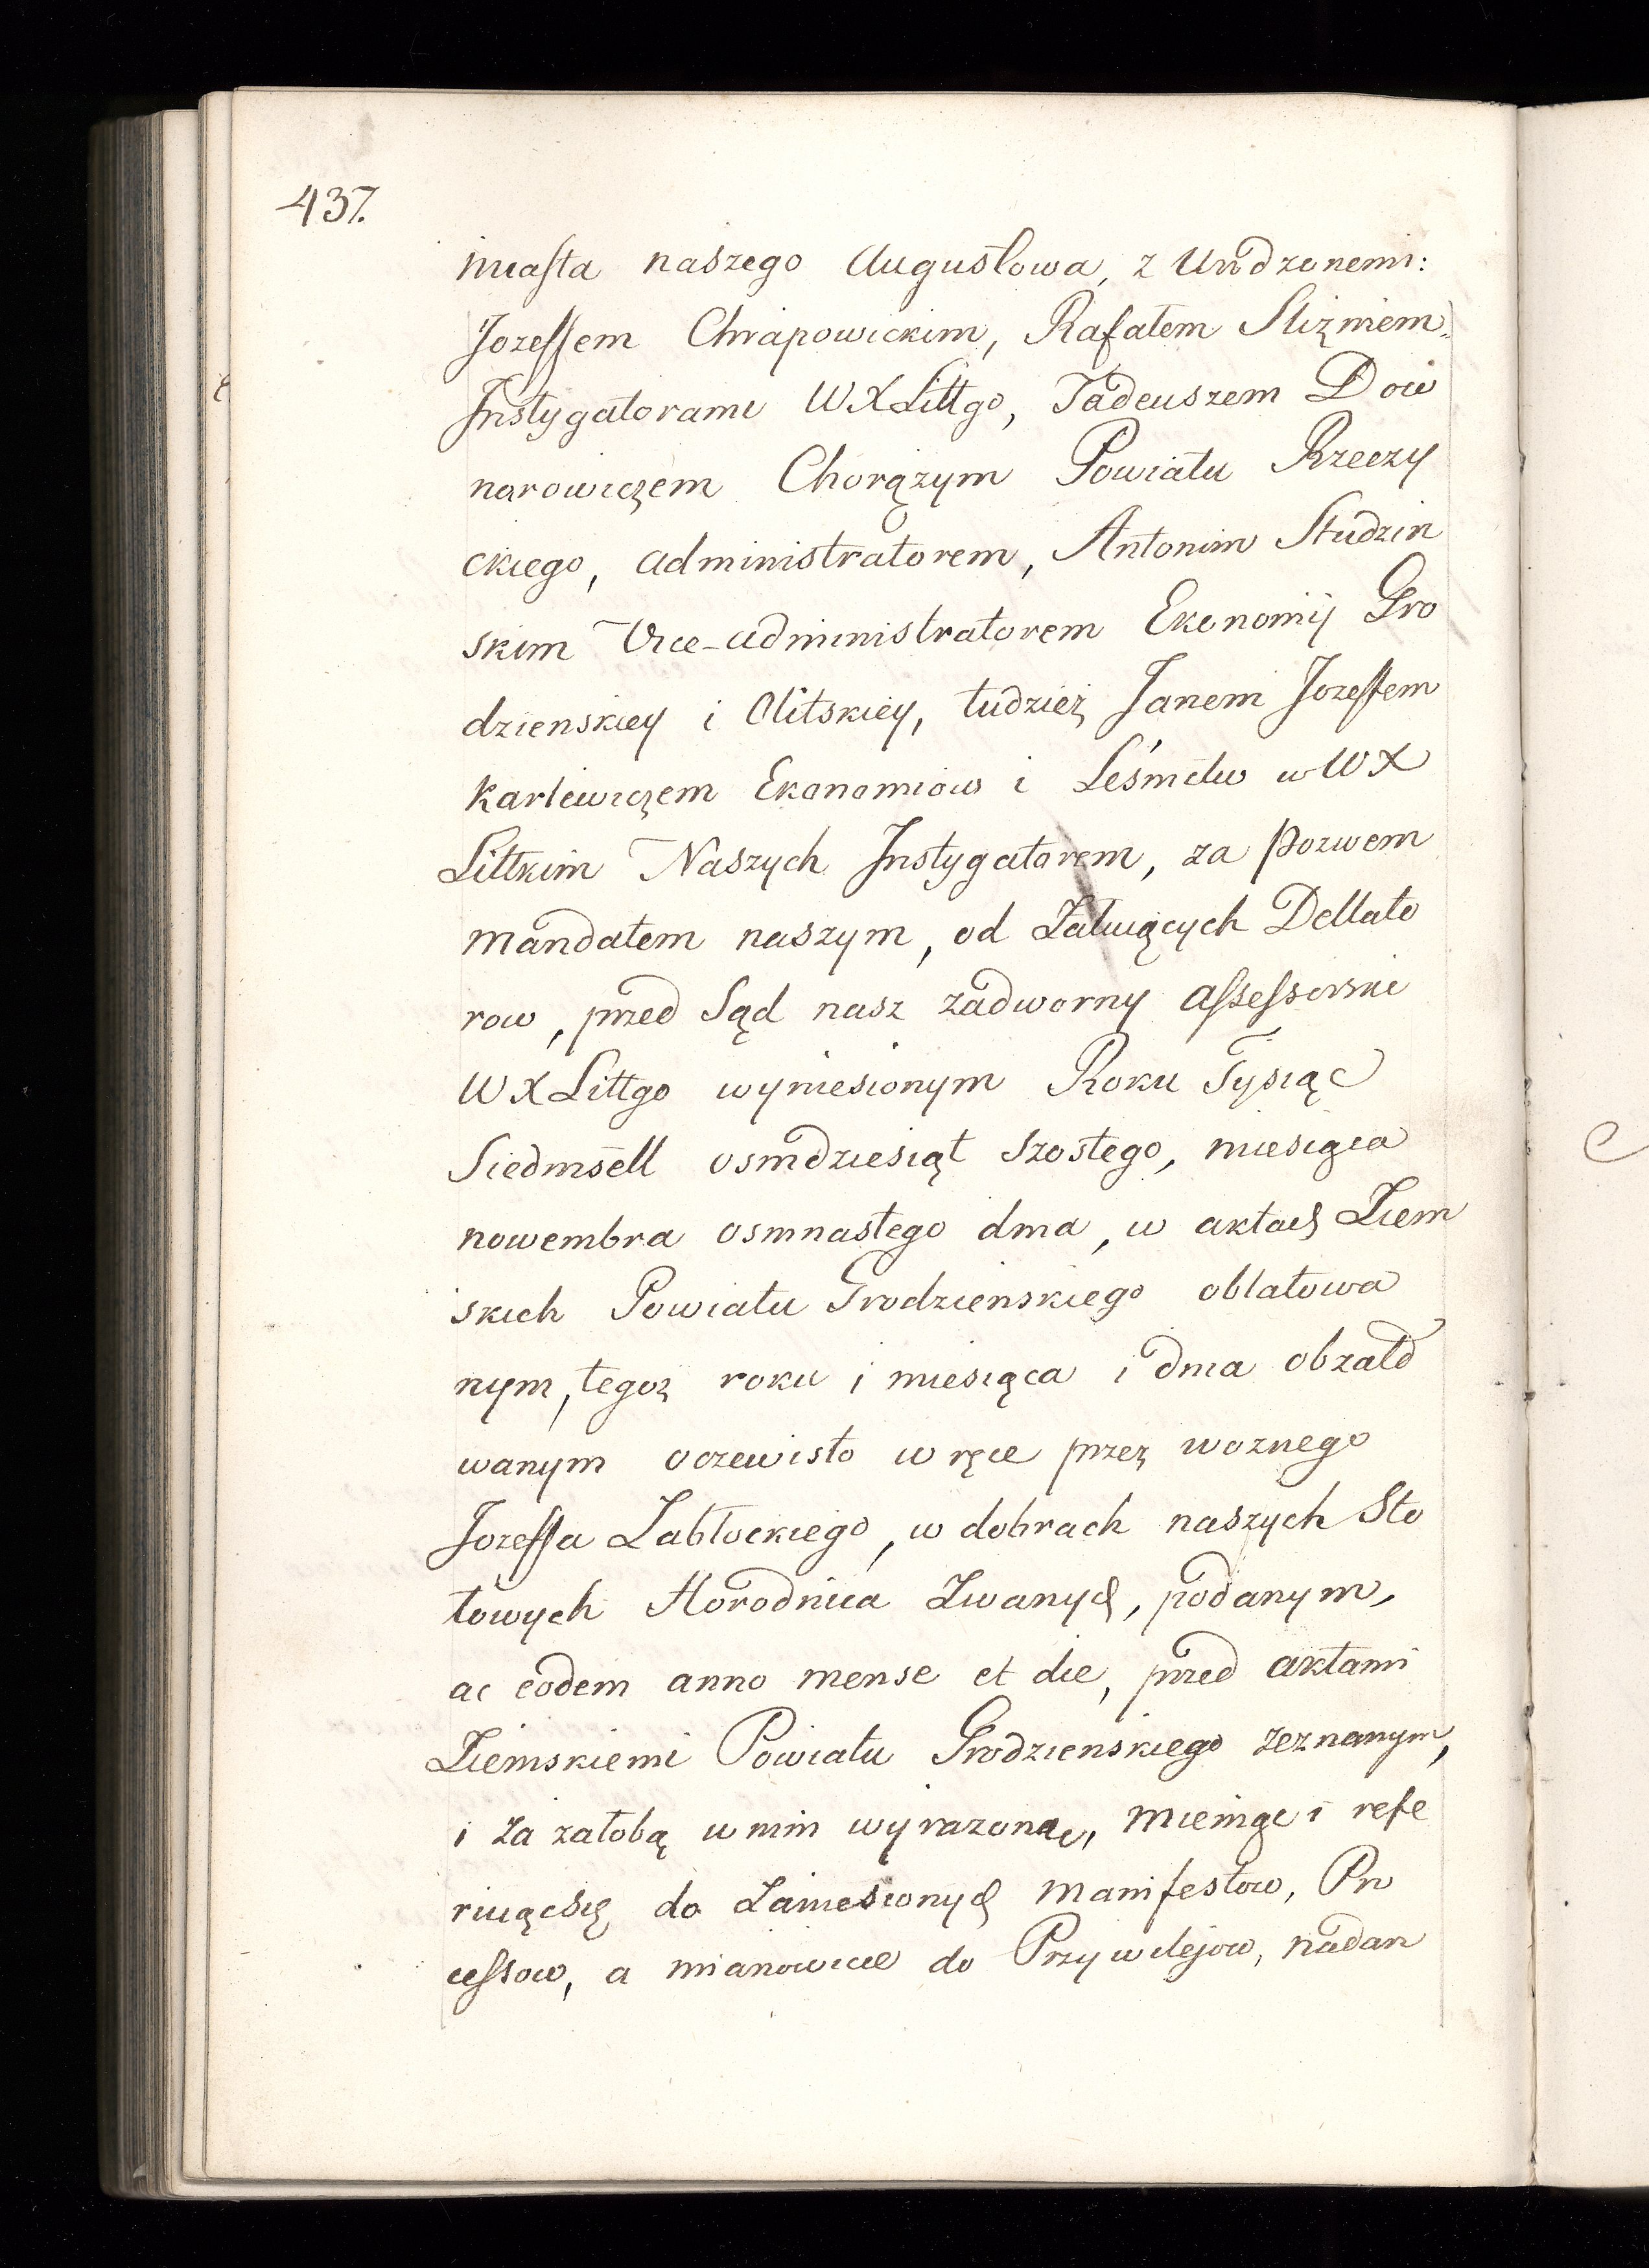 437.
miasta naszego Augustowa, z Urodzonemi:
Jozeffem Chrapowickim, Rafałem Slizniem
Instygatorami WXLittgo, Tadeuszem Dow
narowiczem Chorązym Powiatu Rzeczy
ckiego, administratorem, Antonim Studzin
skim Vice-administratorem Ekonomij Gro
dzienskiey i Olitskiey, tudzież Janem Jozeffem
Karlewiczem Ekonomiow i Leśnictw w WX
Littkim Naszych Instygatorem, za pozwem
mandatem naszym, od Załuiących Dellato
row, przed Sąd nasz zadworny assessorski
WXLittgo wyniesionym Roku Tysiąc
Siedmsett osmdziesiąt szostego, miesiąca
nowembra osmnastego dnia, w aktach Ziem
skich Powiatu Grodzienskiego oblatowa
nym, tegoż roku i miesiąca i dnia obzało
wanym oczewisto w ręce przez woznego
Jozeffa Zabłockiego, w dobrach naszych Sto
łowych Horodnica Zwanych, podanym,
ac eodem anno mense et die, przed aktami
Ziemskiemi Powiatu Grodzienskiego zeznanym,
i za załobą w nim wyrazoną, mieniąc i refe
riuiącsię do Zaniesionych manifestow, Pro
cessow, a mianowicie do Przywilejow, nadan